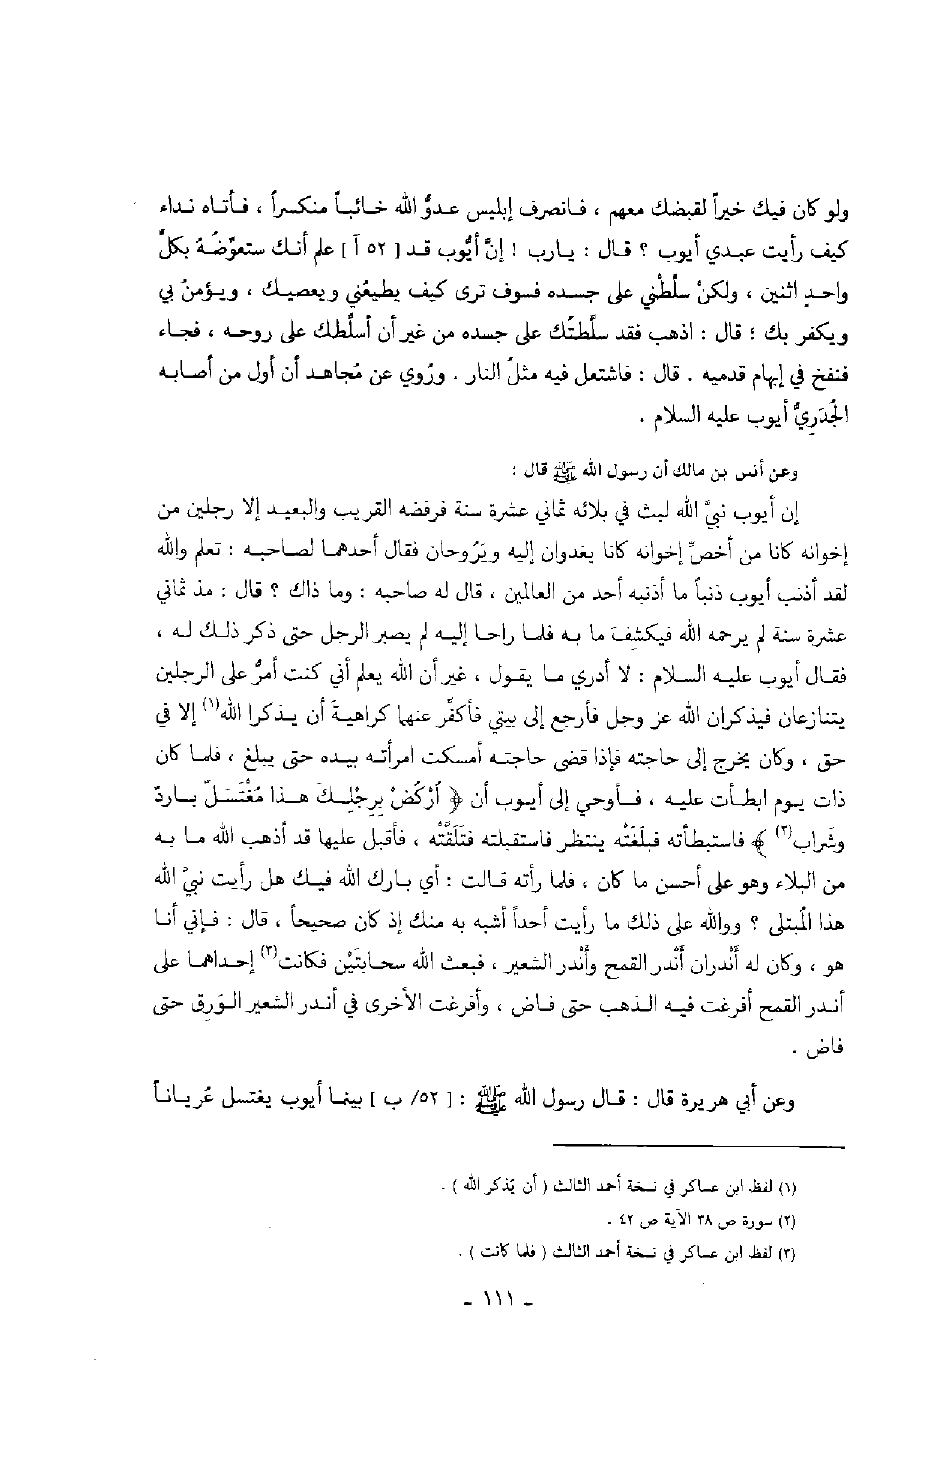 ولو كان فيك خيراً لقبضك معهم ، فانصرف إبليس عدوُّ الله خائباً منكسراً ، فأتاه نداء
كيف رأيت عبدي أيوب ؟ قال : يارب ! إنَّ أيُّوب قد [ ٥٢ آ ] علم أنك ستعوّضهُ بكلِّ
واحدٍ اثنين ، ولكنْ سلِّطْني على جسده فسوف ترى كيف يطيعُني ويعصيك ، ويؤمنُ بي
ويكفر بك ؛ قال : اذهب فقد سلَّطتُك على جسده من غير أن أسلِّطك على روحه ، فجاء
فنفخ في إبهام قدميه . قال : فاشتعل فيه مثلُ النار . ورُوي عن مُجاهد أن أول من أصابه
الجُدَرِيُّ أيوب عليه السلام .
وعن أنس بن مالك أن رسول الله ﷺ قال :
إن أيوب نبيَّ الله لبث في بلائه ثماني عشرة سنة فرفضه القريب والبعيد إلا رجلين من
إخوانه كانا من أخصِّ إخوانه كانا يغدوان إليه ويَرُوحان فقال أحدهما لصاحبه : تعلم والله
لقد أذنب أيوب ذنباً ما أذنبه أحد من العالمين ، قال له صاحبه : وما ذاك ؟ قال : مذ ثماني
عشرة سنة لم يرحمه الله فيكشفَ ما به فلما راحا إليه لم يصبر الرجل حتى ذكر ذلك له ،
فقال أيوب عليه السلام : لا أدري ما يقول ، غير أن الله يعلم أني كنت أمرُّ على الرجلين
يتنازعان فيذكران الله عز وجل فأرجع إلى بيتي فأكفّر عنها كراهيةَ أن يذكرا الله(١) إلا في
حق ، وكان يخرج إلى حاجته فإذا قضى حاجته أمسكت امرأته بيده حتى يبلغ ، فلما كان
ذات يوم ابطأت عليه ، فأوحي إلى أيوب أن ﴿ أرْكُضْ بِرِجْلِكَ هذا مُغْتَسَلٌ باردٌ
وشَراب(٢) ﴾ فاستبطأته فبلغَتْه ينتظر فاستقبلته فتلَقَّتْه ، فأقبل عليها قد أذهب الله ما به
من البلاء وهو على أحسن ما كان ، فلما رأته قالت : أي بارك الله فيك هل رأيت نبيَّ الله
هذا المُبتلى ؟ ووالله على ذلك ما رأيت أحداً أشبه به منك إذ كان صحيحاً ، قال : فإني أنا
هو ، وكان له أنْدران أنْدر القمح وأنْدر الشعير ، فبعث الله سحابتَيْن فكانت(٣) إحداهما على
أندر القمح أفرغت فيه الذهب حتى فاض ، وأفرغت الأخرى في أندر الشعير الوَرِق حتى
فاض .
وعن أبي هريرة قال : قال رسول الله ﷺ : [ ٥٢/ ب ] بينما أيوب يغتسل عُرياناً
(١) لفظ ابن عساكر في نسخة أحمد الثالث ( أن يُذكر الله ) .
(٢) سورة ص ٣٨ الآية ص ٤٢ .
(٣) لفظ ابن عساكر في نسخة أحمد الثالث ( فلما كانت ) .
ـ ١١١ ـ